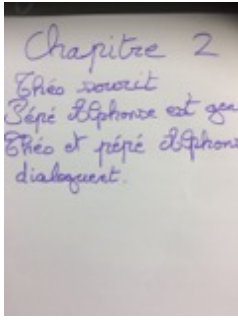 Chapitre 2
Théo sourit
Pépé Alphonse est gen
Théo et pépé Alphons
dialoguent.